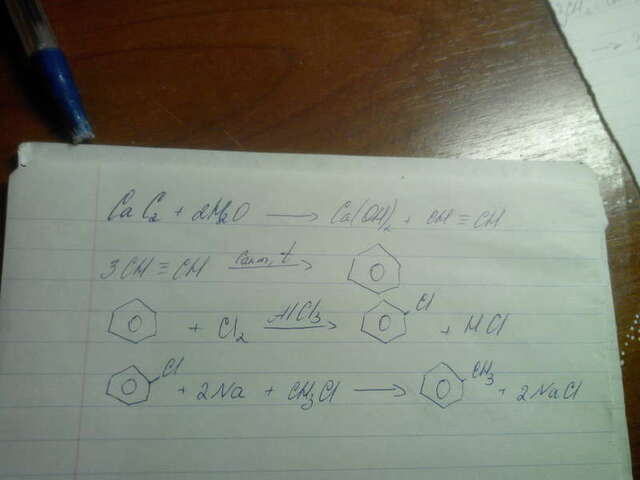 CaC₂ + 2H₂O ⟶ Ca(OH)₂ + CH≡CH
3CH≡CH t ⟶
+ Cl₂ AlCl₃ ⟶ Cl + HCl
Cl + 2Na + CH₃Cl ⟶ CH₃ + 2NaCl